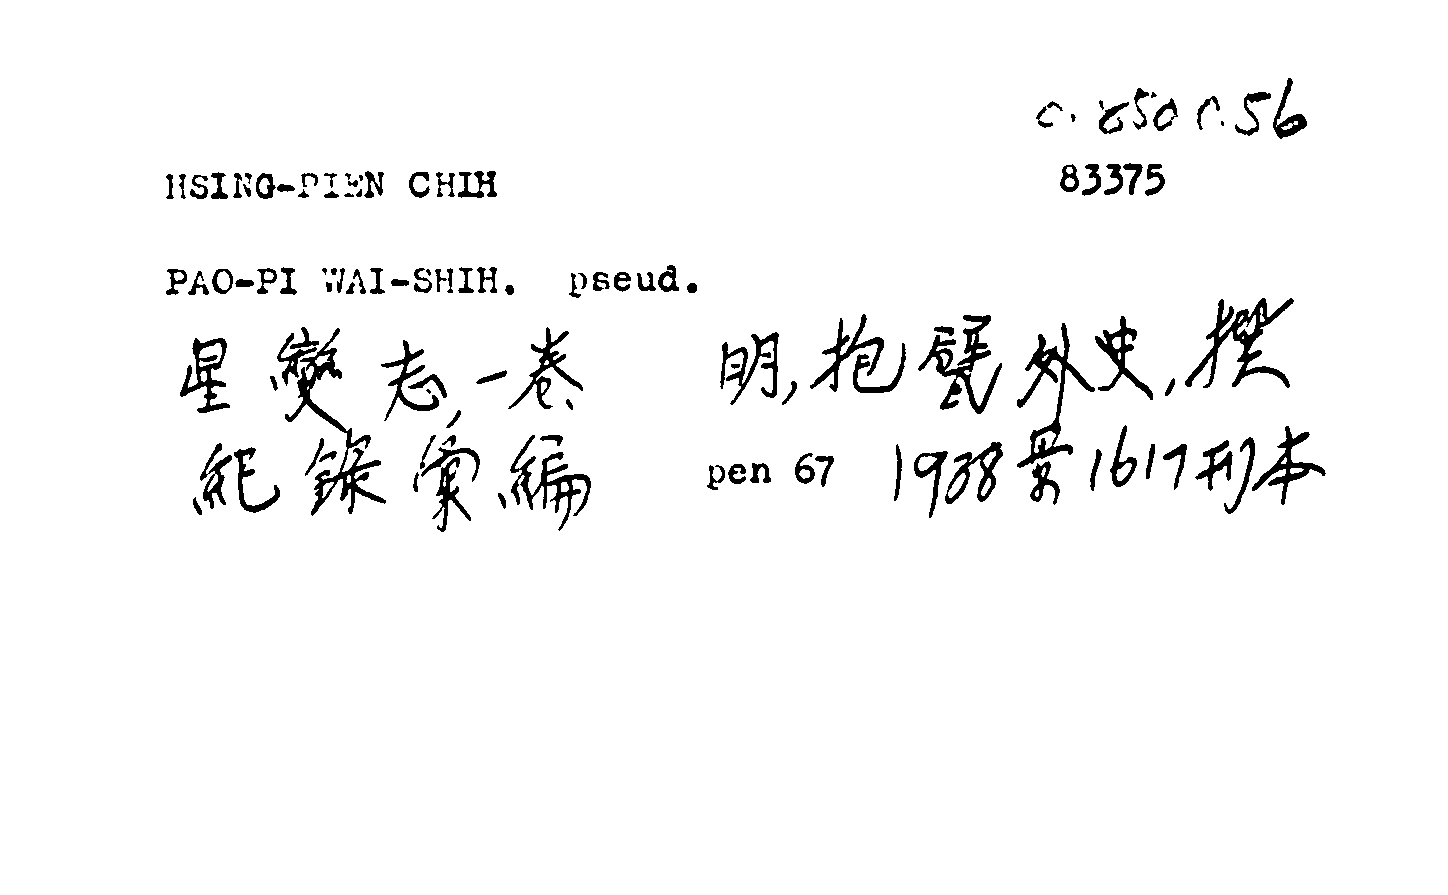 c. 850 c. 56
HSING-PIEN CHIH 83375
PAO-PI WAI-SHIH. pseud.
星變志,一卷、 明,抱甓外史,撰
紀錄彙編 pen 67 1938景1617刊本